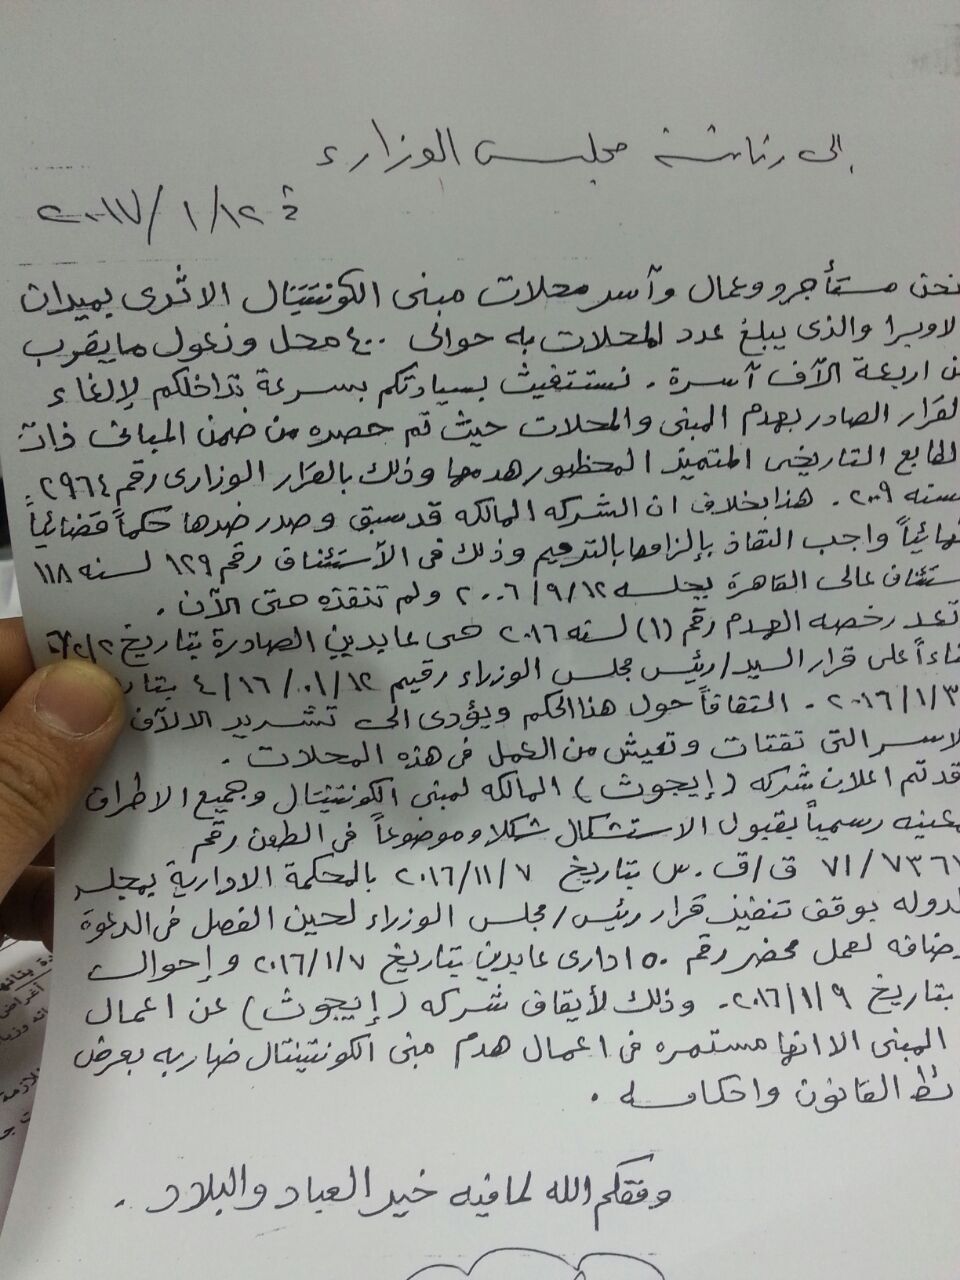 إلى رئاسة مجلس الوزراء
في ١٢/ ١/ ٢٠١٧
نحن مستأجرو وعمال وآسر محلات مبنى الكونتيننتال الاثرى بميدان
لاوبرا والذى يبلغ عدد المحلات به حوالى ٤٠٠ محل ونعول ما يقرب
ن اربعة الآف آسرة . نستغيث بسيادتكم بسرعة تداخلكم لإلغاء
لقرار الصادر بهدم المبنى والمحلات حيث تم حصره من ضمن المبانى ذات
لطابع التاريخى المتميز المحظور هدمها وذلك بالقرار الوزارى رقم ٢٩٦٤
لسنه ٢٠٠٩ . هذا بخلاف ان الشركه المالكه قد سبق وصدر ضدها حكماً قضائياً
نهائياً واجب النفاذ بإلزامها بالترميم وذلك فى الآستئناف رقم ١٢٩ لسنه ١١٨
ستئناف عالى القاهرة بجلسه ١٢/ ٩/ ٢٠٠٦ ولم تنفذه حتى الآن .
تعد رخصه الهدم رقم (١) لسنه ٢٠١٦ حى عابدين الصادرة بتاريخ
ناءاً على قرار السيد/ رئيس مجلس الوزراء رقيم ١٢/ ٠١/ ١٦/ ٤
٢٠١٦/١/٣ . التفافاً حول هذا الحكم ويؤدى الى تشريد الالآف
لاسر التى تقتات وتعيش من العمل فى هذه المحلات .
قد تم اعلان شركه (إيجوث) المالكه لمبنى الكونتيننتال وجميع الاطراف
معنيه رسمياً بقبول الاستشكال شكلا وموضوعاً فى الطعن رقم
٧١/ ٧٣٦٧ ق/ق.س بتاريخ ٧/ ١١/ ٢٠١٦ بالمحكمة الادارية بمجلس
لدوله بوقف تنفيذ قرار رئيس/ مجلس الوزراء لحين الفصل فى الدعوة
ضافه لعمل محضر رقم ٥٠ ادارى عابدين بتاريخ ٧/ ١/ ٢٠١٦ و إحوال
بتاريخ ٩/ ١/ ٢٠١٦ . وذلك لأيقاف شركه (إيجوث) عن اعمال
المبنى الا انها مستمره فى اعمال هدم مبنى الكونتيننتال ضاربه بعرض
ئط القانون واحكامه .
وفقكم الله لما فيه خير العباد والبلاد .